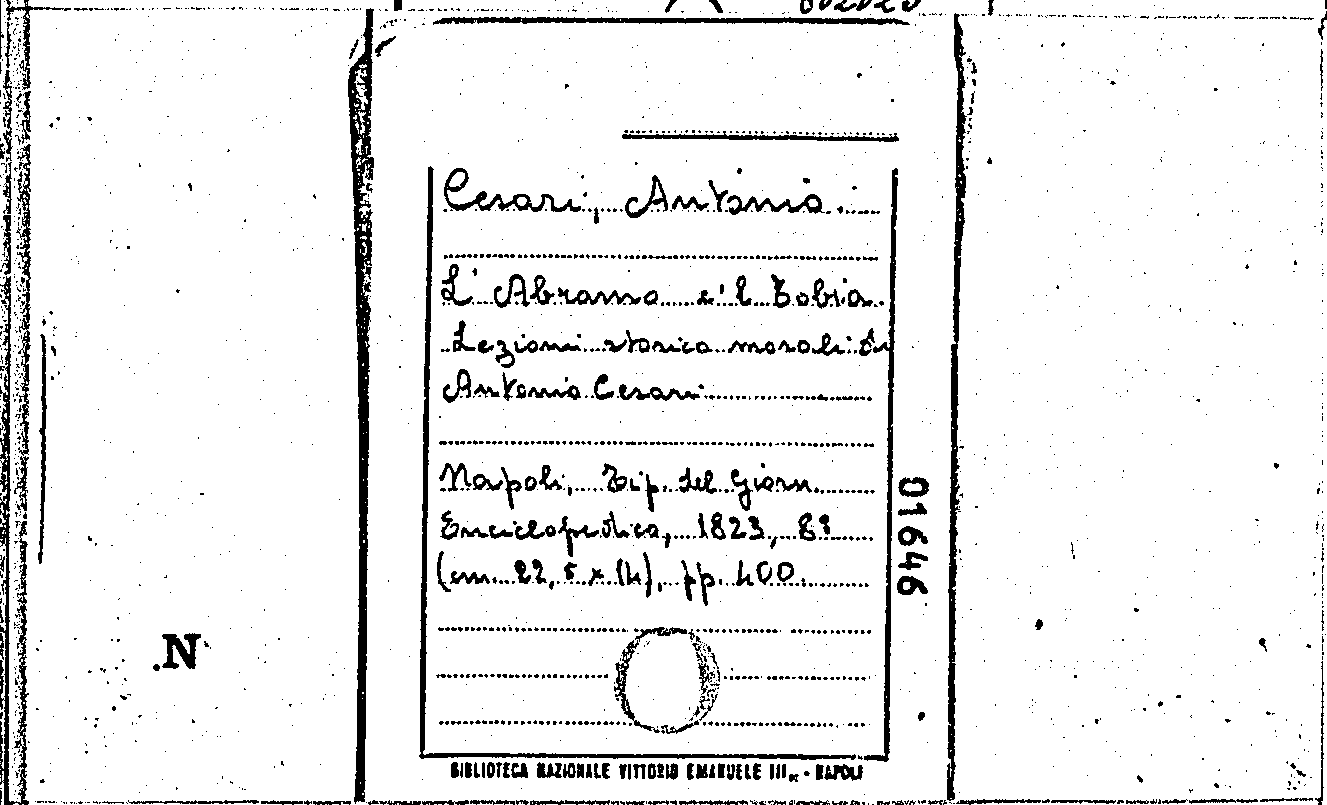 Cesari, Antonio.
L'Abramo e'l Tobia.
Lezioni storico morali di
Antonio Cesari
Napoli, Tip. del Giorn.
Enciclopedico, 1823, 8º
(cm. 22,5 x 14), pp. 400.
01646
.N
BIBLIOTECA NAZIONALE VITTORIO EMANUELE III - NAPOLI